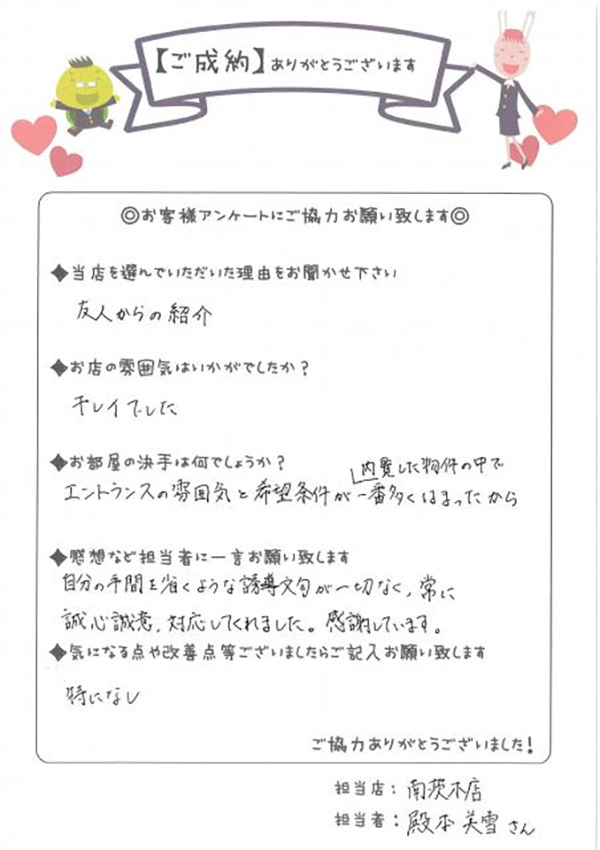 【ご成約】ありがとうございます
◎お客様アンケートにご協力お願い致します◎
◆当店を選んでいただいた理由をお聞かせ下さい
友人からの紹介
◆お店の雰囲気はいかがでしたか?
キレイでした
◆お部屋の決手は何でしょうか?
内覧した物件の中で
エントランスの雰囲気と希望条件が一番多くはまったから
◆感想など担当者に一言お願い致します
自分の手間を省くような誘導文句が一切なく、常に
誠心誠意、対応してくれました。感謝しています。
◆気になる点や改善点等ございましたらご記入お願い致します
特になし
ご協力ありがとうございました!
担当店: 南茨木店
担当者: 殿本 美雪さん